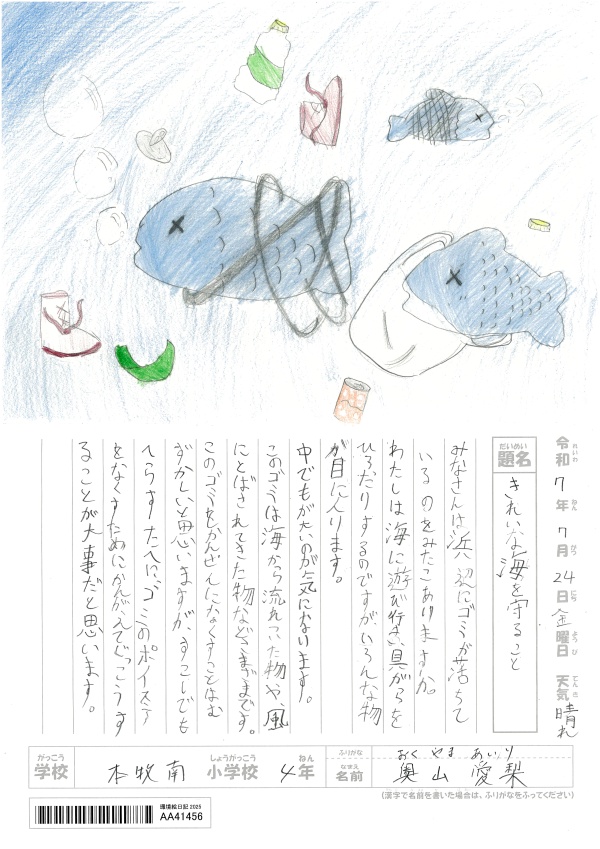 令和7年7月24日金曜日 天気 晴れ
れいわ ねん がつ にち ようび てんき
だいめい
題名 きれいな海を守ること
みなさんは浜辺にゴミが落ちて
いるのをみたこありますか。
わたしは海に遊び行き貝がらを
ひろたりするのですがいろんな物
が目に入ります。
中でもが気になります。
このゴミは海から流れついた物や、風
にとばされてきた物などさまざまです。
このゴミをかんぜんになくすことはむ
ずかしいと思いますが、すこしでも
へらすために、ゴミのポイステ
をなくすためにかんがえてこうす
ることが大事だと思います。
がっこう しょうがっこう ねん ふりがな おくやま あいり
学校 本牧南 小学校 4年 なまえ 名前 奥山愛梨
(漢字で名前を書いた場合は、ふりがなをふってください)
環境絵日記 2025
AA41456